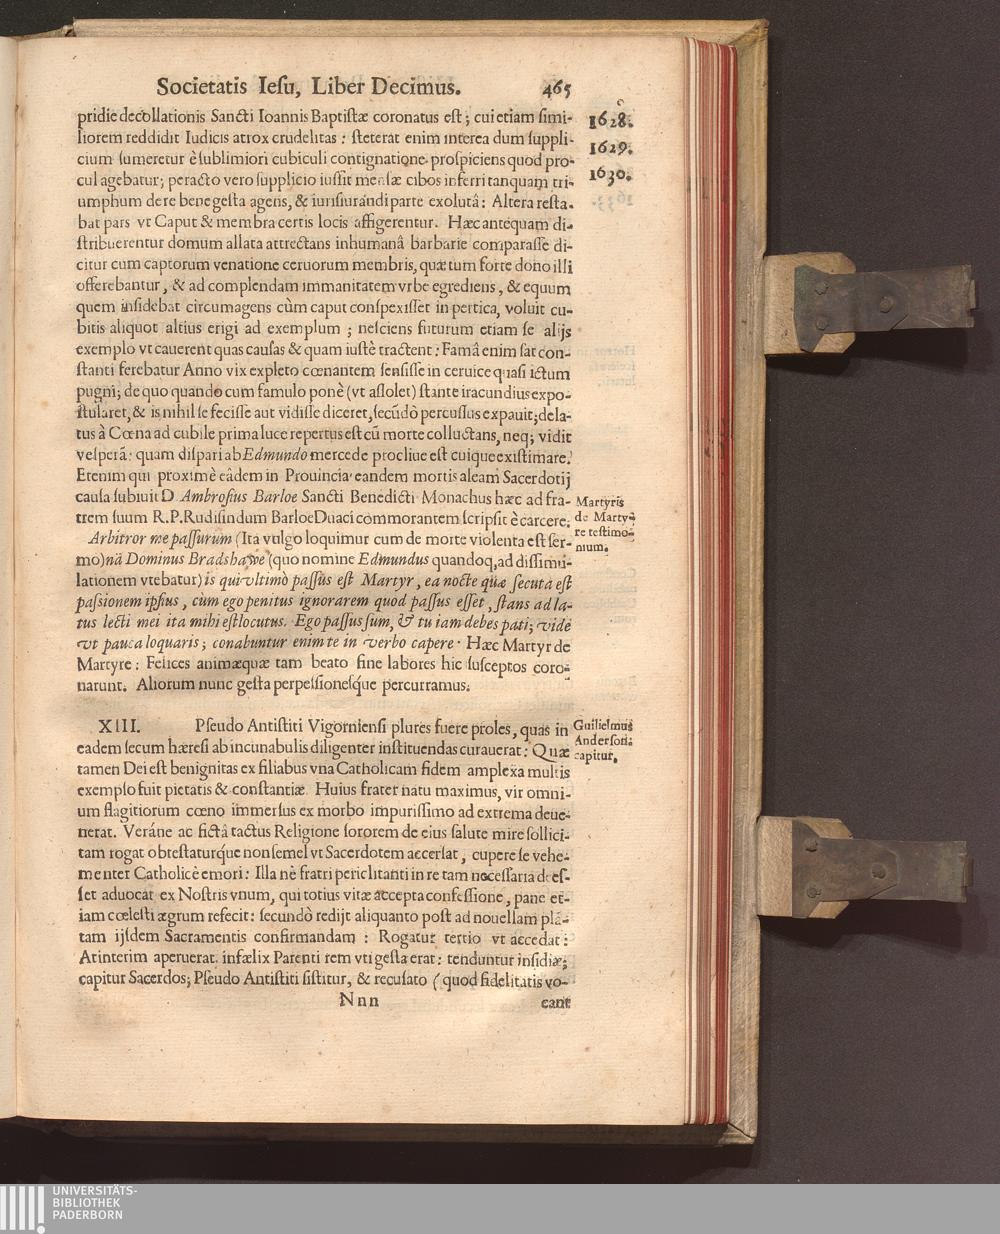 Societatis Iesu, Liber Decimus. 465
1628.
1629.
1630.
pridie decollationis Sancti Ioannis Baptistæ coronatus est; cui etiam simi-
liorem reddidit Iudicis atrox crudelitas: steterat enim interea dum suppli-
cium sumeretur è sublimiori cubiculi contignatione prospiciens quod pro-
cul agebatur; peracto vero supplicio iussit mensæ cibos inferri tanquam tri-
umphum de re bene gesta agens, & iurisiurandi parte exolutâ: Altera resta-
bat pars vt Caput & membra certis locis affigerentur. Hæc antequam di-
stribuerentur domum allata attrectans inhumanâ barbarie comparasse di-
citur cum captorum venatione ceruorum membris, quæ tum forte dono illi
offerebantur, & ad complendam immanitatem vrbe egrediens, & equum
quem insidebat circumagens cùm caput conspexisset in pertica, voluit cu-
bitis aliquot altius erigi ad exemplum; nesciens futurum etiam se alijs
exemplo vt cauerent quas causas & quam iustè tractent: Famâ enim sat con-
stanti ferebatur Anno vix expleto cœnantem sensisse in ceruice quasi ictum
pugni; de quo quando cum famulo ponè (vt assolet) stante iracundius expo-
stularet, & is nihil se fecisse aut vidisse diceret, secũdò percussus expauit; dela-
tus à Cœna ad cubile prima luce repertus est cũ morte colluctans, neq; vidit
vesperã: quam dispari ab Edmundo mercede procliue est cuique existimare.
Etenim qui proximè eâdem in Prouincia eandem mortis aleam Sacerdotij
causa subiuit D Ambrosius Barloe Sancti Benedicti Monachus hæc ad fra-
trem suum R.P. Rudisindum Barloe Duaci commorantem scripsit è carcere:
Arbitror me passurum (Ita vulgo loquimur cum de morte violenta est ser-
mo) nã Dominus Bradshawe (quo nomine Edmundus quandoq, ad dissimu-
lationem vtebatur) is qui vltimò passus est Martyr, ea nocte quæ secuta est
passionem ipsius, cùm ego penitus ignorarem quod passus esset, stans ad la-
tus lecti mei ita mihi est locutus. Ego passus sum, & tu iam debes pati; vide
vt pauca loquaris; conabuntur enim te in verbo capere. Hæc Martyr de
Martyre: Felices animæ quæ tam beato fine labores hic susceptos coro-
narunt. Aliorum nunc gesta perpessionesque percurramus.
Martyris
de Marty-
re testimo-
nium.
XIII. Pseudo Antistiti Vigorniensi plures fuere proles, quas in
eadem secum hæresi ab incunabulis diligenter instituendas curauerat: Quæ
tamen Dei est benignitas ex filiabus vna Catholicam fidem amplexa multis
exemplo fuit pietatis & constantiæ. Huius frater natu maximus, vir omni-
um flagitiorum cœno immersus ex morbo impurissimo ad extrema deue-
nerat. Veráne ac fictâ tactus Religione sororem de eius salute mire sollici-
tam rogat obtestaturque non semel vt Sacerdotem accersat, cupere se vehe-
menter Catholicè emori: Illa nè fratri periclitanti in re tam necessaria dees-
set aduocat ex Nostris vnum, qui totius vitæ accepta confessione, pane et-
iam cœlesti ægrum refecit: secundò redijt aliquanto post ad nouellam plã-
tam ijsdem Sacramentis confirmandam: Rogatur tertio vt accedat:
At interim aperuerat infælix Parenti rem vti gesta erat: tenduntur insidiæ;
capitur Sacerdos; Pseudo Antistiti sistitur, & recusato (quod fidelitatis vo-
Guilielmus
Andersonꝰ
capitur.
Nnn cant
UNIVERSITÄTS-
BIBLIOTHEK
PADERBORN